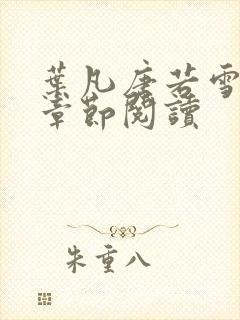 葉凡唐若雪
章節閱讀
朱重八